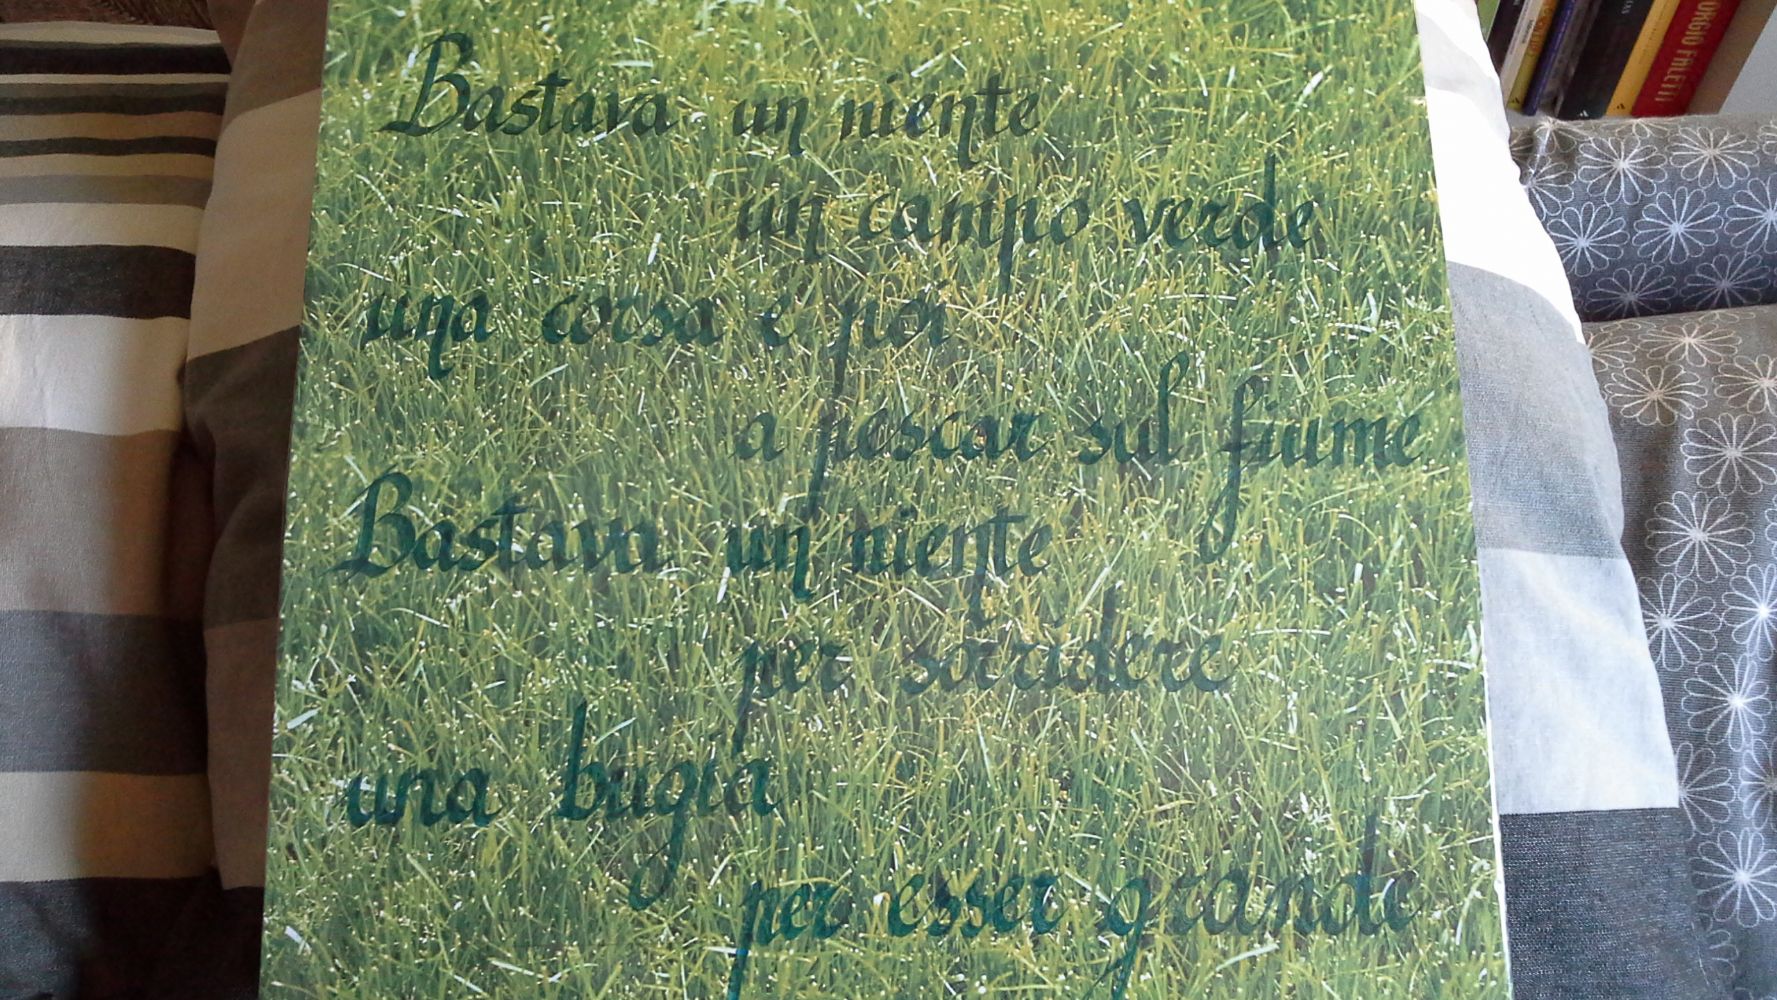 Bastava un niente
un campo verde
una corsa e poi
a pescar sul fiume
Bastava un niente
per sorridere
una bugia
per esser grande
FALETTI